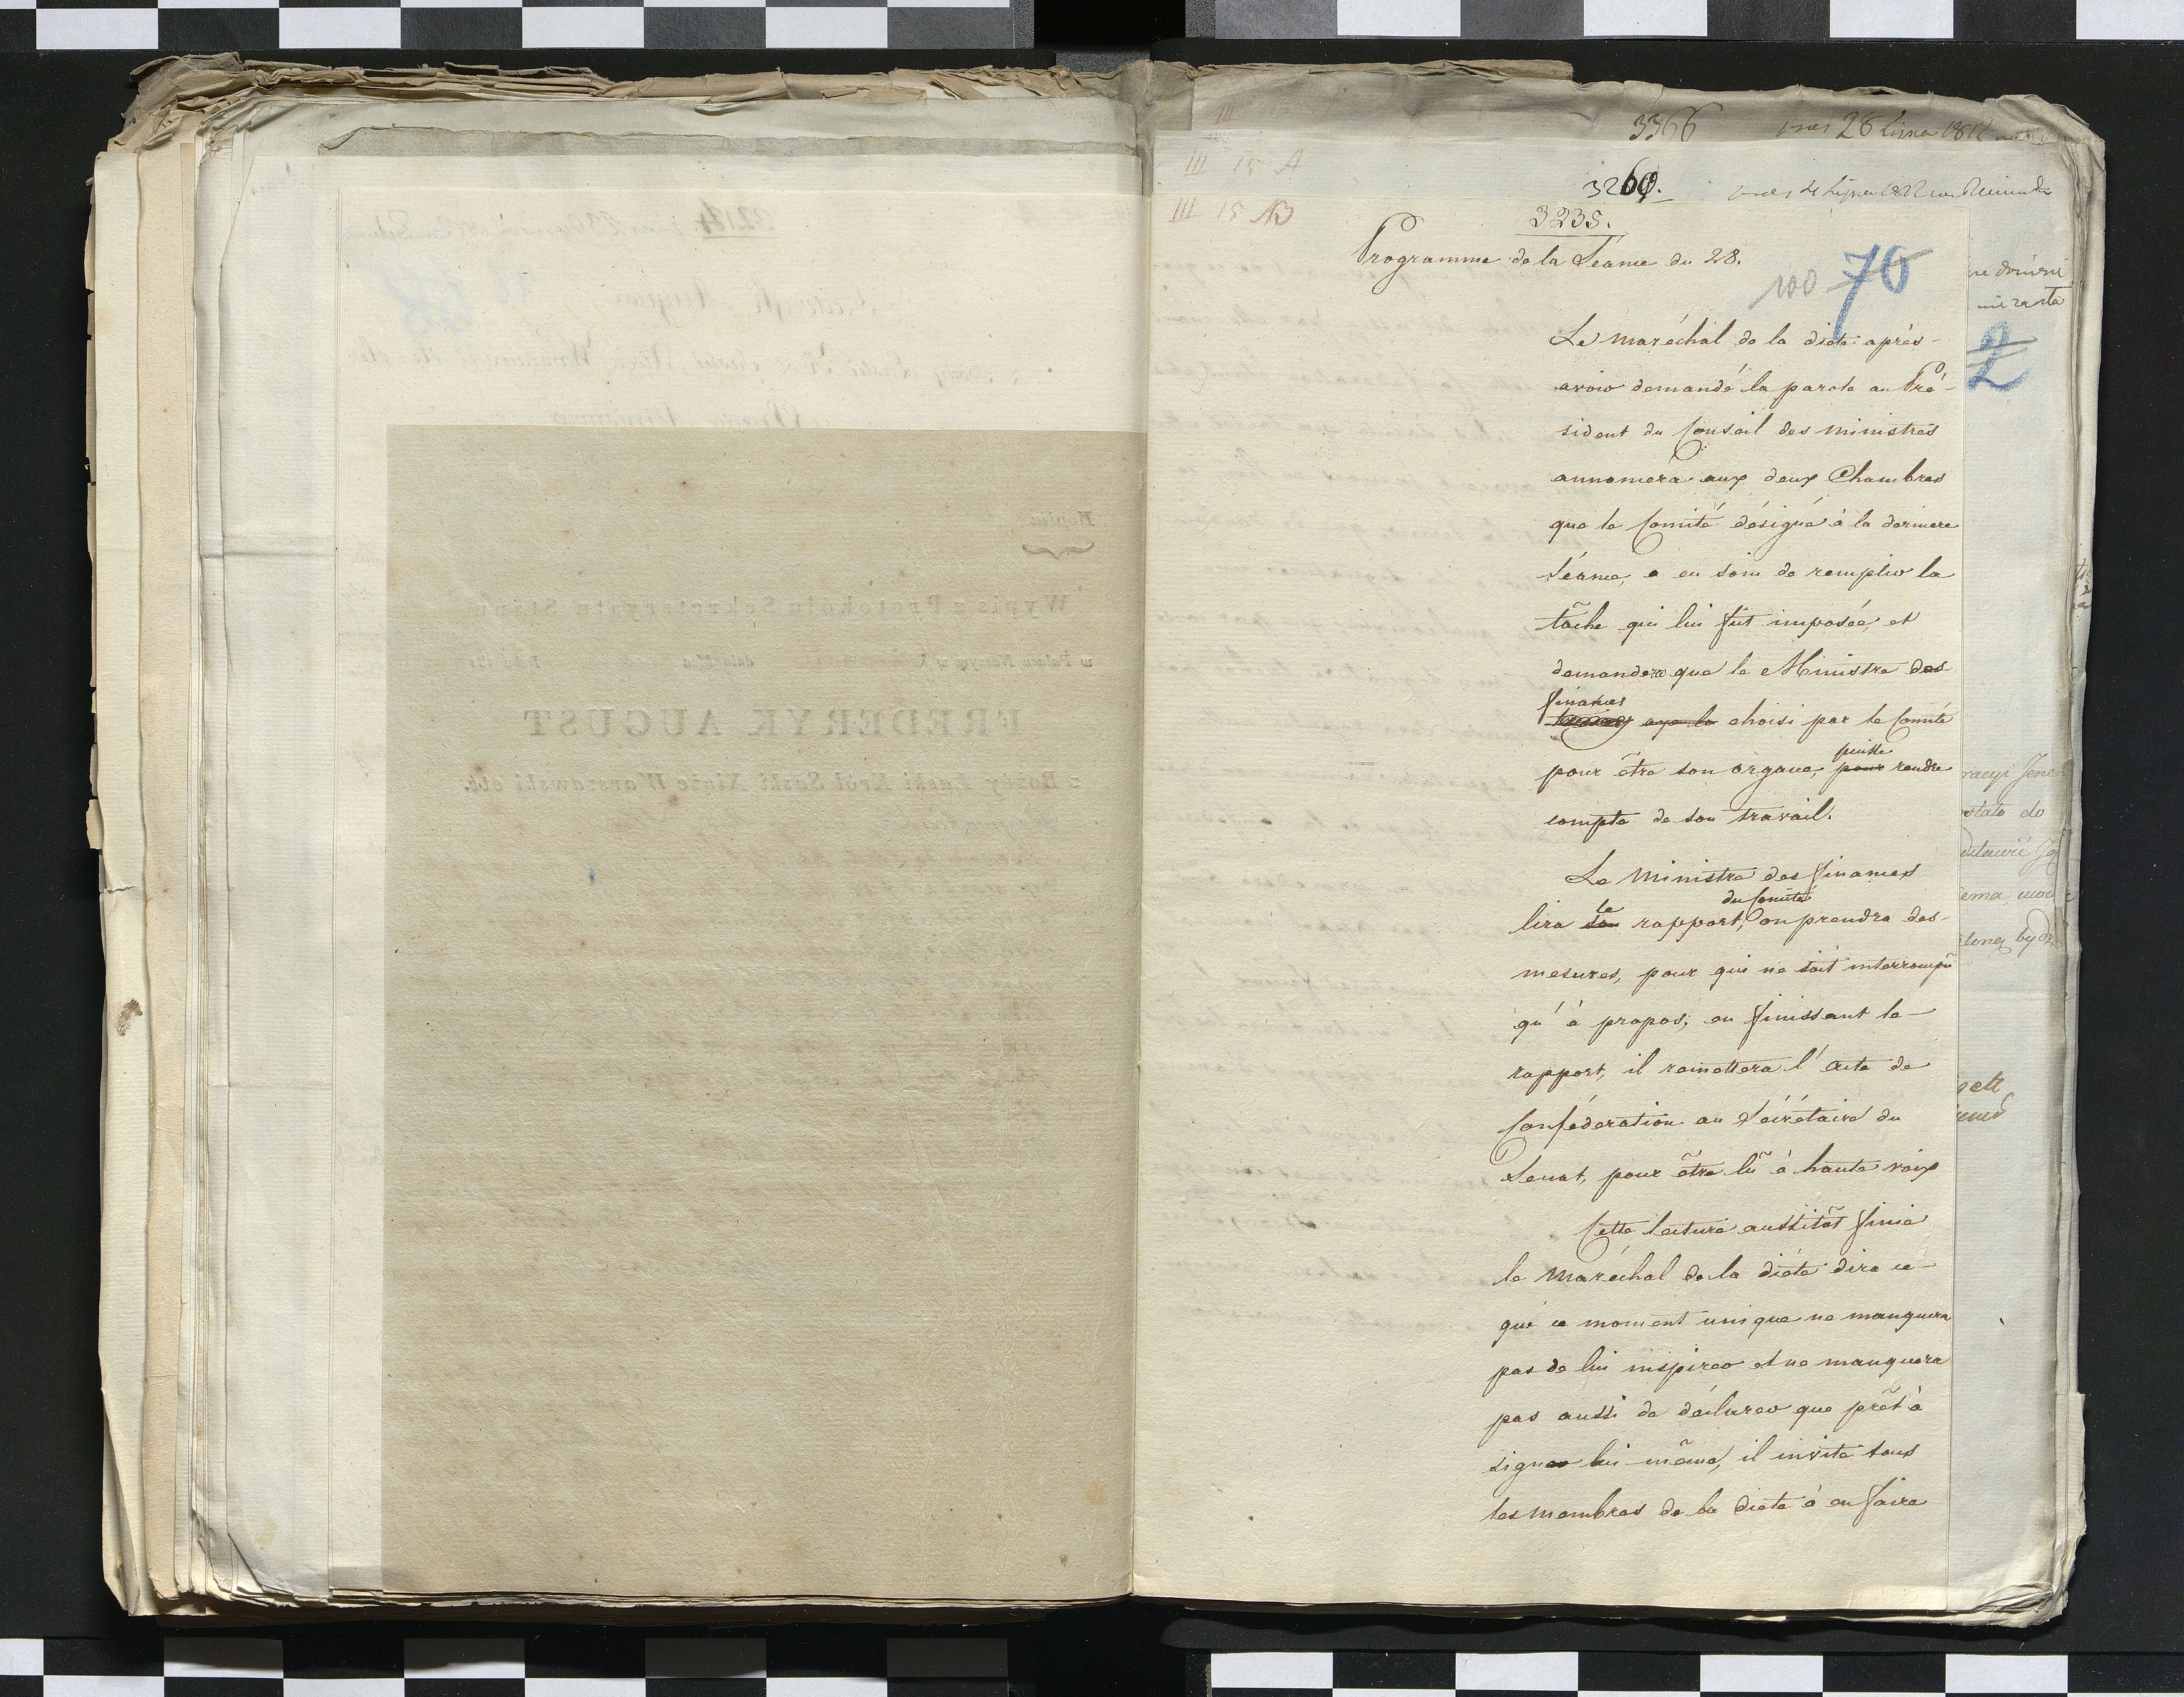 3366
28 Lipca 1812
III 15 A
3260.
III 15 B
3235.
Programme de la Séance du 28.
100 70
Le maréchal de la diéte après-
avoir demandé la parole au Pré-
sident du Conseil des ministres
annoncera aux deux Chambres
que le Comité désigué à la derniere
Séance, a eu soin de remplir la
tãche qui lui fut imposée, et
demandera que le Ministre des
finances
choisi par le Comité
puisse
pour ẽtre son organe, pour rendre
compte de son travail.
Le Ministre des finances
le du Comité
lira son rapport, on prendra des-
mesures, pour qui ne soit interrompũ
qu'à propos; en finissant le-
rapport, il remettera l'Acte de
Conféderation au Sécrétaire du
Senat, pour ẽtre lũ à haute voix
Cette lecture aussitõt finie
le Maréchal de la diéte dira ce-
que ce moment unique ne manquera
pas de lui inspirer et ne manquera
pas aussi de déclarer que prẽt à
signer lui-mẽme, il invite tous
les Membres de la diete à en faire
2
FREDERYK AUGUST
z Bożey Łaski Król Saski Xiąże Warszawski etc.
Wypis z Protokolu Sekretaryatu Stanu